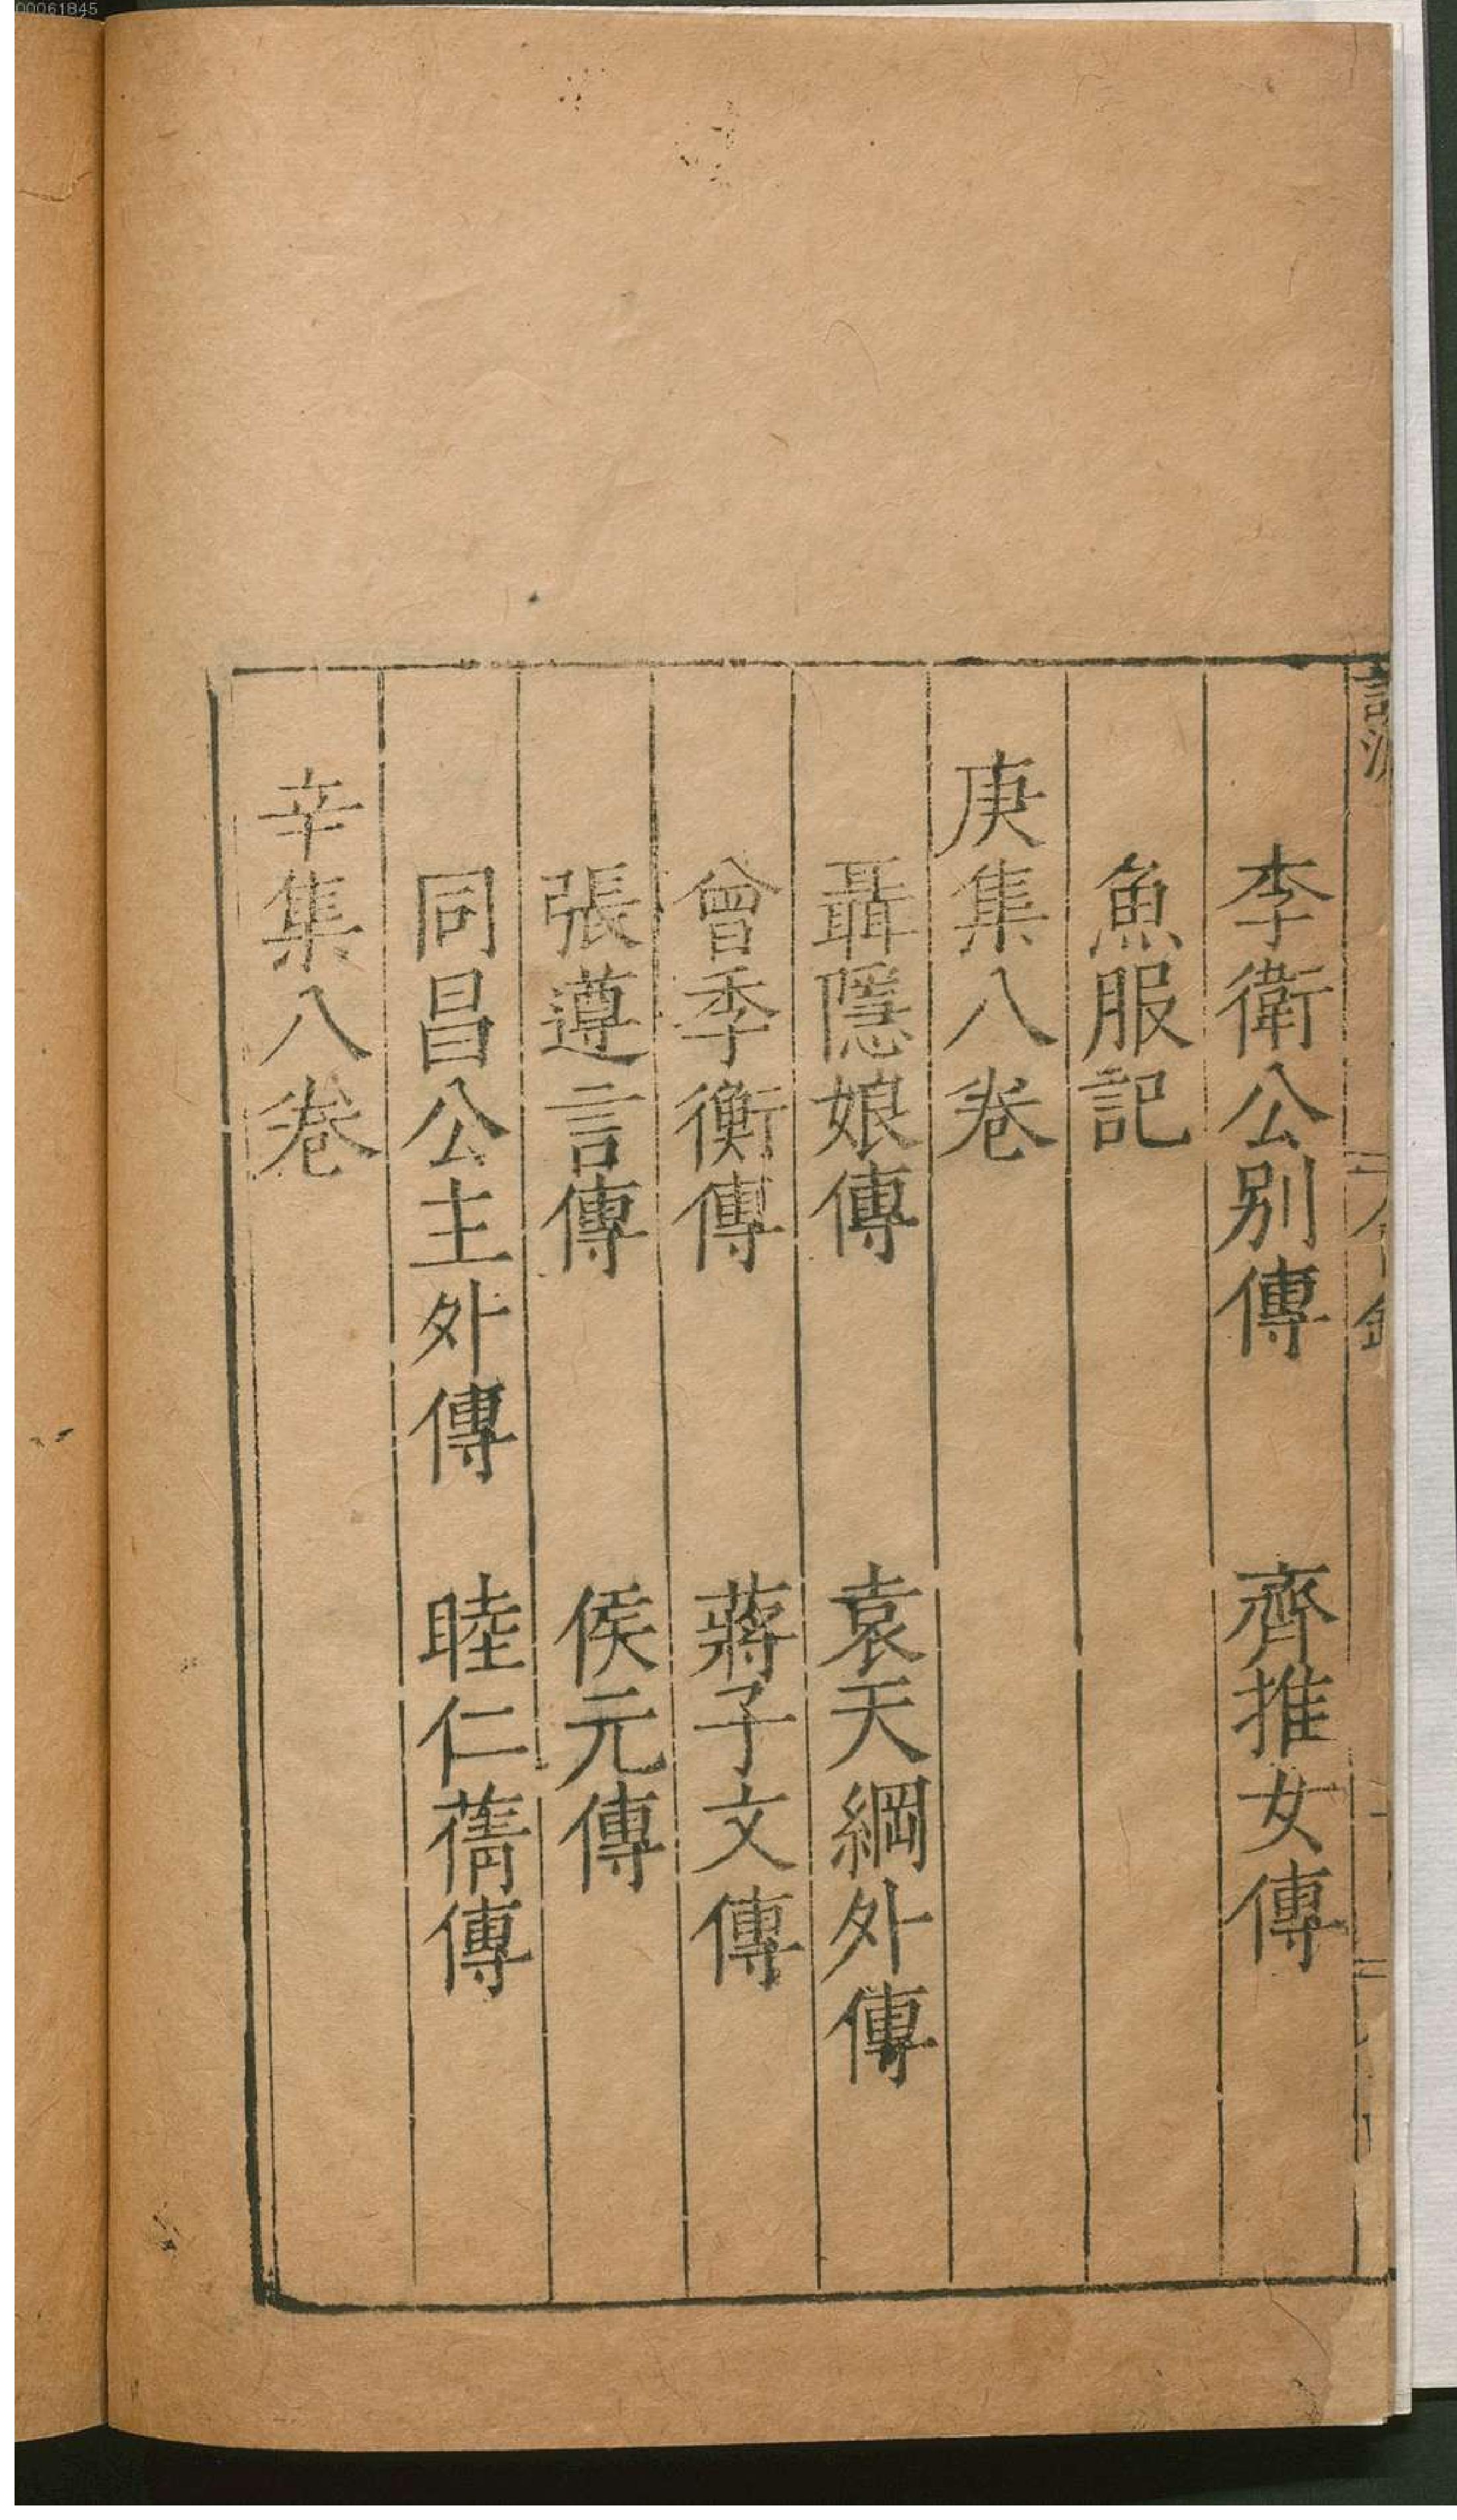 李衛公別傳 齊推女傳
魚服記
庚集八卷
聶隱娘傳 袁天綱外傳
曾季衡傳 蔣子文傳
張遵言傳 侯元傳
同昌公主外傳 睦仁蒨傳
辛集八卷
00061845